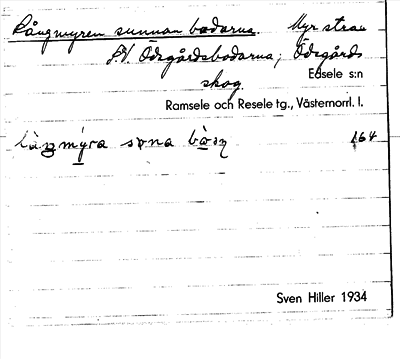 Långmyren sunnan bodarna Myr strax
s.V. Ödsgårdsbodarna, Ödsgårds
skog.
Edsele s:n
Ramsele och Resele tg., Västernorrl. l.
làŋmýra sɵna bò̱ɜn 164
Sven Hiller 1934